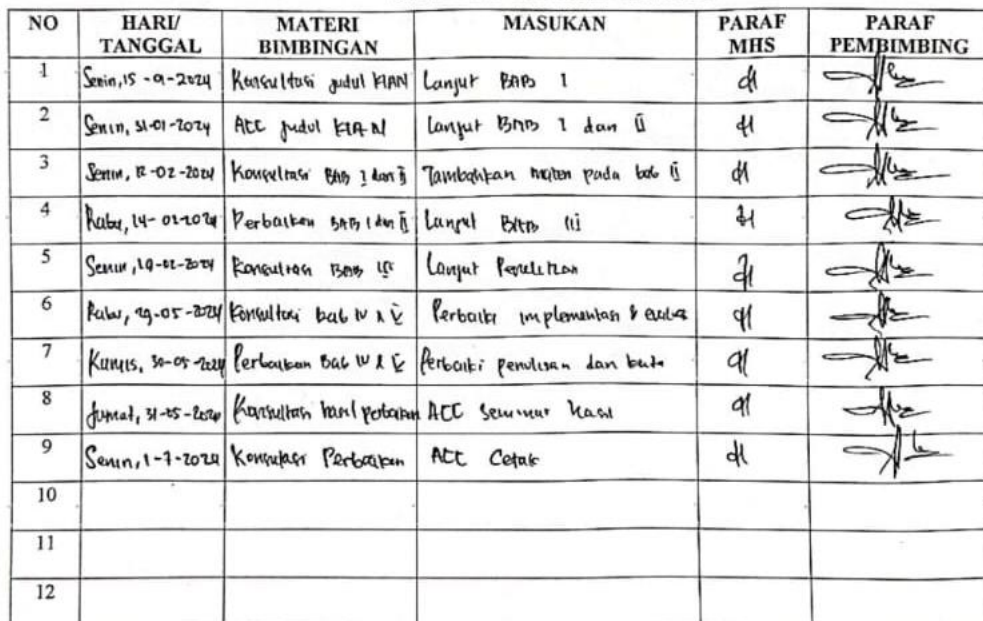 NO HARI/ TANGGAL MATERI BIMBINGAN MASUKAN PARAF MHS PARAF PEMBIMBING
1 Senin, 15-01-2024 Konsultasi judul KIAN Lanjut BAB I
2 Senin, 31-01-2024 ACC judul KIAN Lanjut BAB I dan II
3 Senin, 12-02-2024 Konsultasi BAB I dan II Tambahkan materi pada bab II
4 Rabu, 14-02-2024 Perbaikan BAB I dan II Lanjut BAB III
5 Senin, 19-02-2024 Konsultasi BAB III Lanjut Penelitian
6 Rabu, 29-05-2024 Konsultasi bab IV & V Perbaiki implementasi &
7 Kamis, 30-05-2024 Perbaikan Bab IV & V Perbaiki penulisan dan
8 Jumat, 31-05-2024 Konsultasi hasil perbaikan ACC Seminar Hasil
9 Senin, 1-7-2024 Konsultasi Perbaikan ACC Cetak
10
11
12